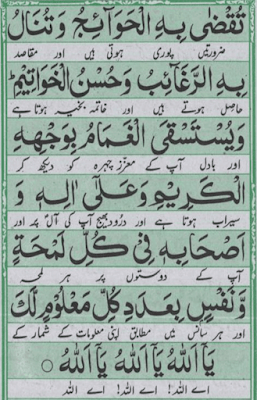 تَقْضٰى بِهِ الْحَوَآئِجُ وَتُنَالُ
ضرورتیں پوری ہوتی ہیں اور مقاصد
بِهِ الرَّغَآئِبُ وَحُسْنُ الْخَوَاتِيْمِ
حاصل ہوتے ہیں اور خاتمہ بخیر ہوتا ہے
وَيُسْتَسْقَى الْغَمَامُ بِوَجْهِهِ
اور بادل آپ کے معزز چہرہ کو دیکھ کر
الْكَرِيْمِ وَعَلٰٓى اٰلِهٖ وَ
سیراب ہوتا ہے اور درود بھیج آپ کی آل پر اور
اَصْحَابِهٖ فِيْ كُلِّ لَمْحَةٍ
آپ کے دوستوں پر ہر لمحہ
وَّنَفَسٍ بِعَدَدِ كُلِّ مَعْلُوْمٍ لَّكَ
اور ہر سانس میں مطابق اپنی معلومات کے شمار کے
يَآ اَللّٰهُ يَآ اَللّٰهُ يَآ اَللّٰهُ ○
اے اللہ! اے اللہ! اے اللہ